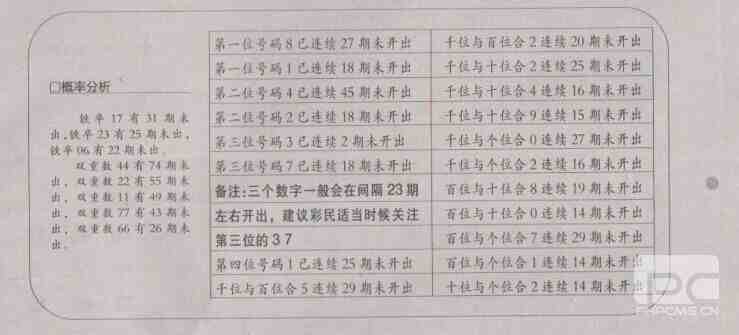 □概率分析
铁卒 17 有 31 期未
出,铁卒 23 有 25 期未出,
铁卒 06 有 22 期未出.
双重数 44 有 74 期未
出, 双重数 22 有 55 期未
出, 双重数 11 有 49 期未
出, 双重数 77 有 43 期未
出, 双重数 66 有 26 期未
出.
第一位号码 8 已连续 27 期未开出
第一位号码 1 已连续 18 期未开出
第二位号码 4 已连续 45 期未开出
第二位号码 2 已连续 18 期未开出
第三位号码 3 已连续 2 期未开出
第三位号码 7 已连续 18 期未开出
备注:三个数字一般会在间隔 23 期
左右开出，建议彩民适当时候关注
第三位的 3 7
第四位号码 1 已连续 25 期未开出
千位与百位合 5 连续 29 期未开出
千位与百位合 2 连续 20 期未开出
千位与十位合 2 连续 25 期未开出
千位与十位合 4 连续 16 期未开出
千位与十位合 9 连续 15 期未开出
千位与个位合 0 连续 27 期未开出
千位与个位合 2 连续 16 期未开出
百位与十位合 8 连续 19 期未开出
百位与十位合 0 连续 14 期未开出
百位与个位合 7 连续 29 期未开出
百位与个位合 1 连续 14 期未开出
十位与个位合 2 连续 14 期未开出
PC
FHPCMS.CN